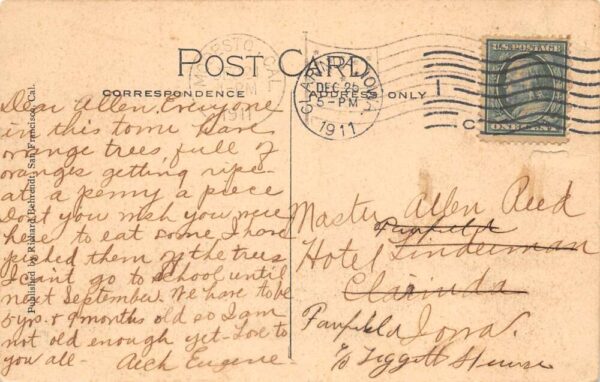 POST CARD
CORRESPONDENCE
ADDRESS ONLY
MODESTO, CAL.
1911
CLARINDA, IOWA.
DEC 26
5-PM
1911
U.S. POSTAGE
ONE CENT
Published by Richard Behrendt, San Francisco, Cal.
Dear Allen. Everyone
in this town have
orange trees full of
oranges getting ripe -
at a penny a piece
dont you wish you were
here to eat some I have
picked them off the trees
I can't go to school until
next September. We have to be
5 yrs. & 9 months old so I am
not old enough yet - Love to
you all - Eugene -
Master Allen Reed
Hotel Linderman
Clarinda
Iowa.